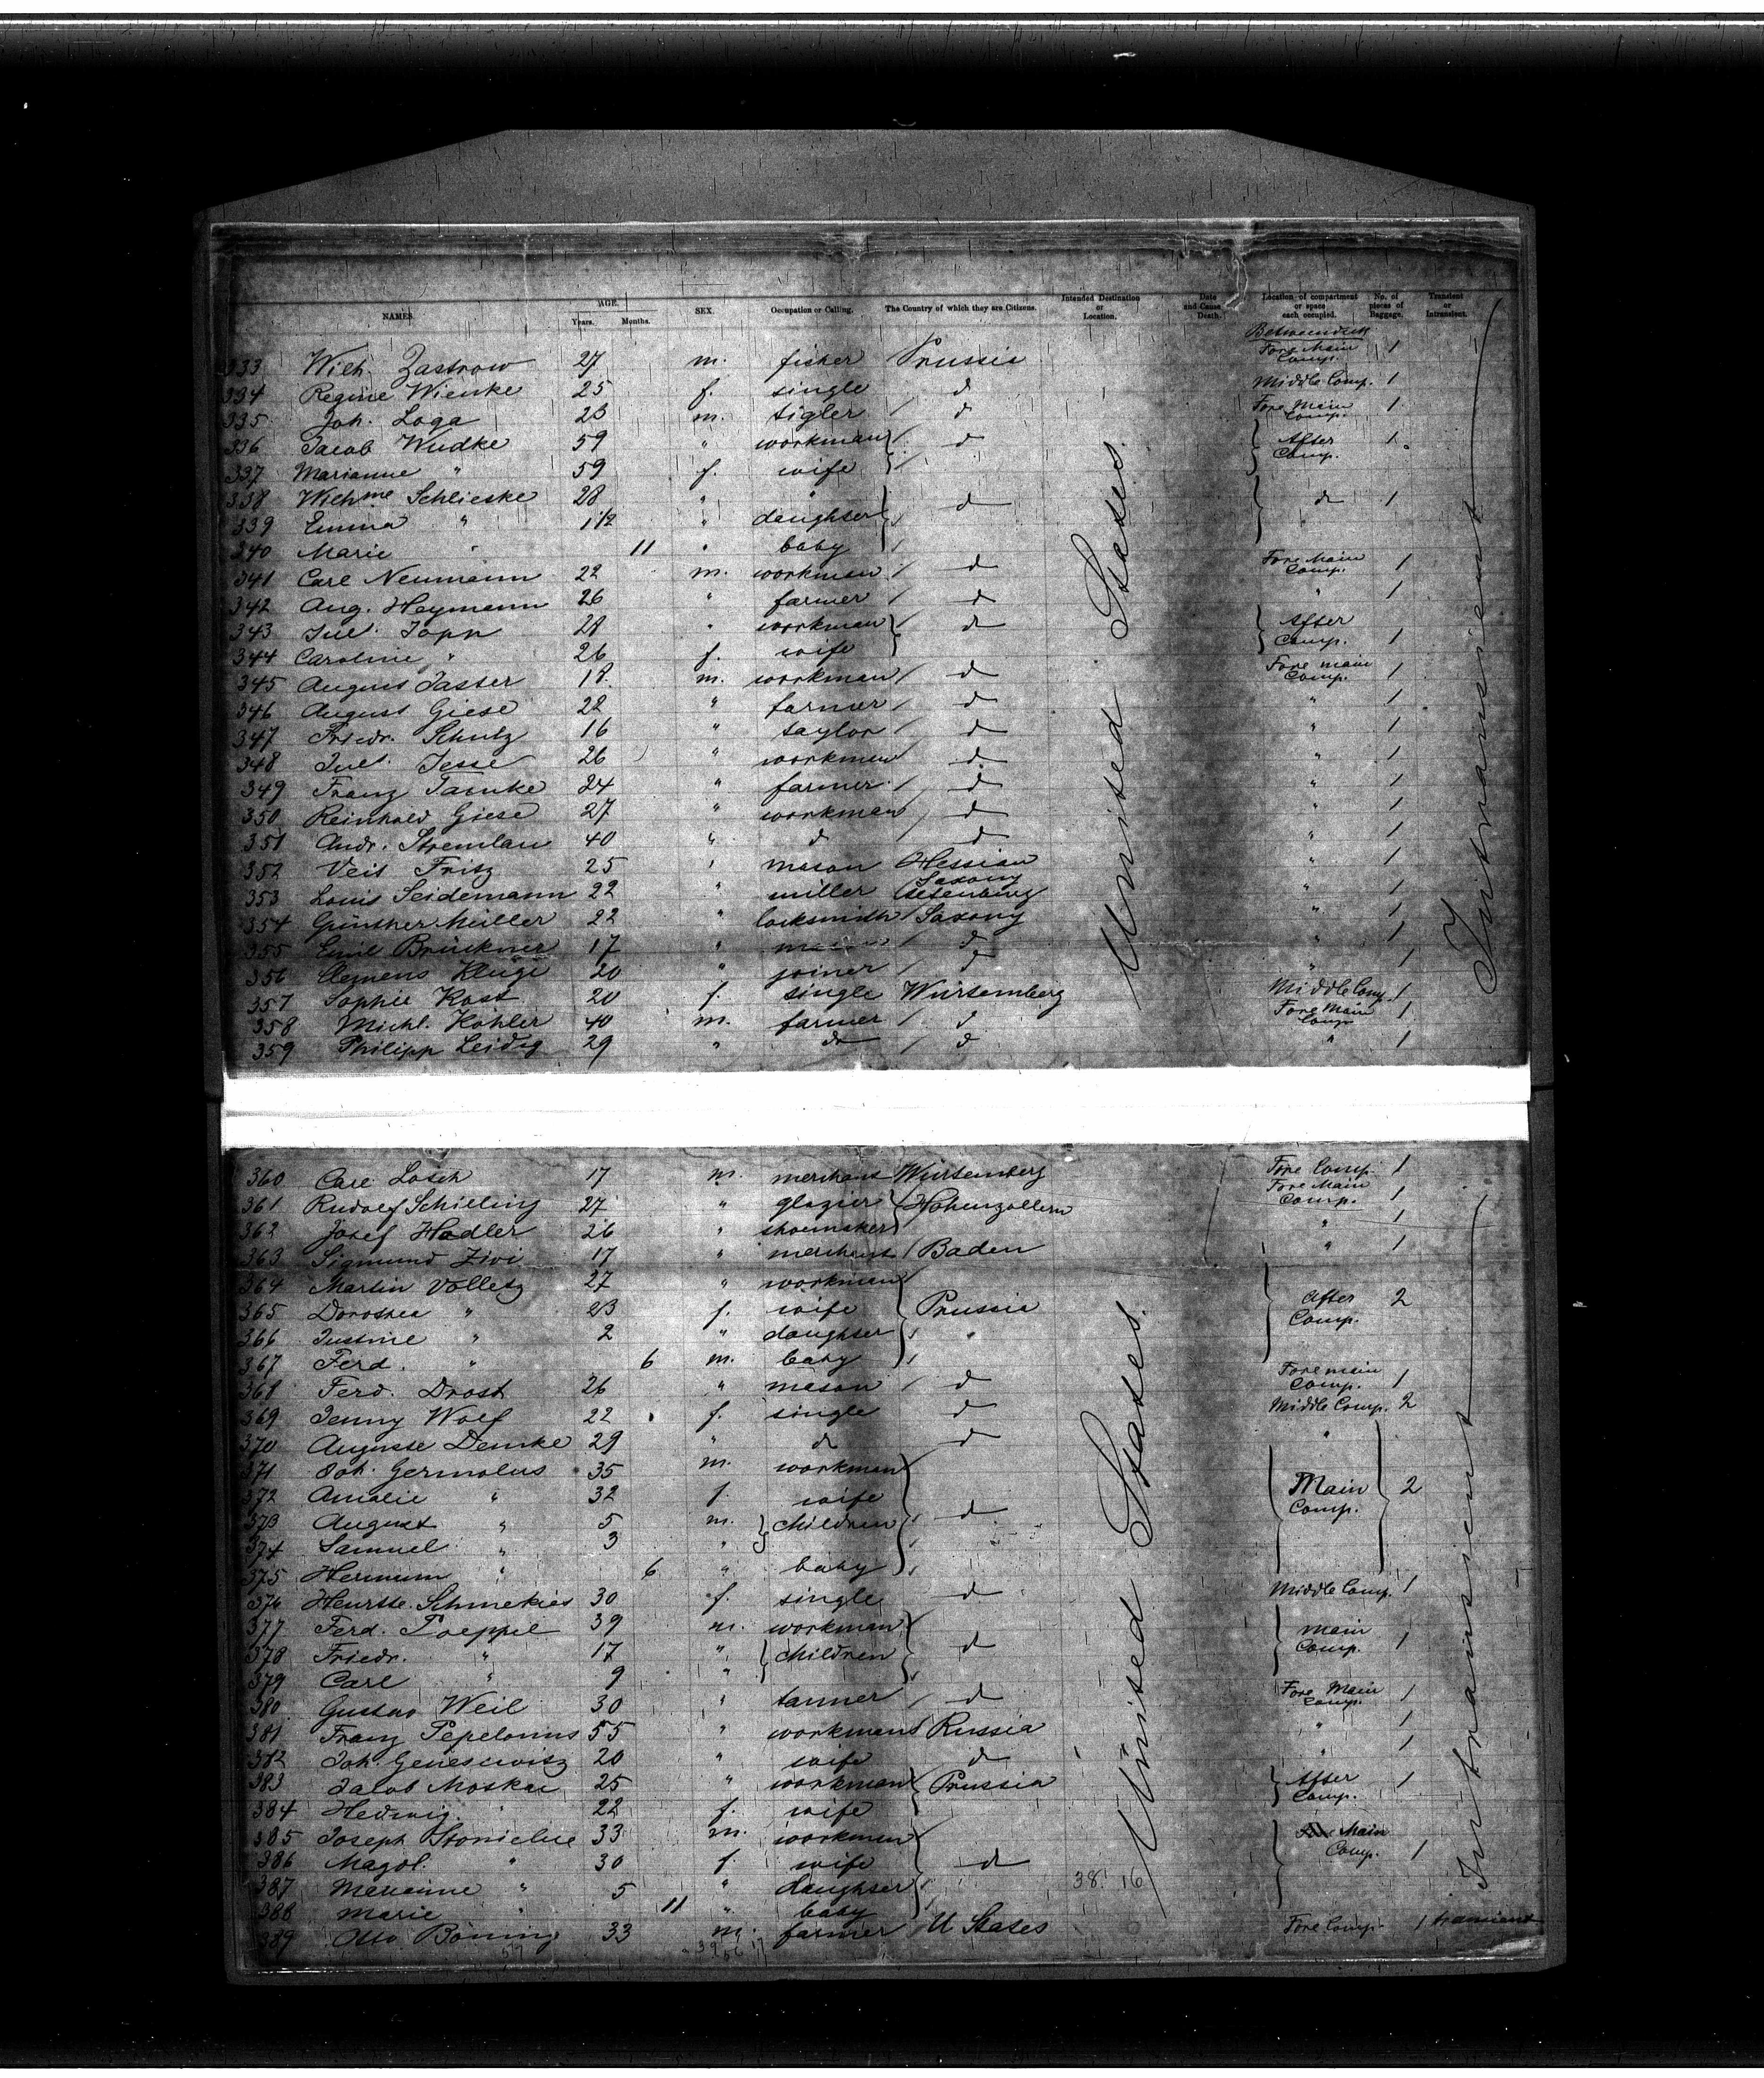 NAMES. AGE. Years. Months. SEX. Occupation or Calling. The Country of which they are Citizens. Intended Destination or Location. Date and Cause Death. Location of compartment or space each occupied. No. of pieces of Baggage. Transient or Intransient.
Betweendeck
333 Wilh. Zastrow 27 m. fisher Prussia Fore Main Comp. 1
334 Regine Wienke 25 f. single d Middle Comp. 1
335 Joh. Loga 23 m. tigler d Fore Main Comp. 1
336 Jacob Wudke 59 " workman d After Comp. 1
337 Marianne " 59 f. wife
338 Wilhme Schlieske 28 " " d d 1
339 Emma " 1 1/2 " daughter "
340 Marie " 11 " baby
341 Carl Neumann 22 m. workman d Fore Main Comp. 1
342 Aug. Heymann 26 " farmer d " 1
343 Jul. Topp 28 " workman d After Comp. 1
344 Caroline " 26 f. wife
345 August Jaster 18 m. workman d Fore main Comp. 1
346 August Giese 22 " farmer d " 1
347 Friedr. Schulz 16 " taylor d " 1
348 Jul. Jesse 26 " workman d " 1
349 Franz 24 " farmer d " 1
350 Reinhold Giese 27 " workman d " 1
351 Andr. Stremlau 40 " d d " 1
352 Veit Fritz 25 " mason Hessian " 1
353 Louis Seidemann 22 " miller Saxony Altenburg " 1
354 Günther Müller 22 " locksmith Saxony " 1
355 Emil Brückner 17 " d " 1
356 Clemens Kluge 20 " joiner d " 1
357 Sophie Kost 20 f. single Würtemberg Middle Comp. 1
358 Michl. Köhler 40 m. farmer d Fore Main Comp 1
359 Philipp Leidig 29 " do d " 1
United States
Intransient
360 Carl Losch 17 m. merchant Würtemberg Fore Comp. 1
361 Rudolf Schieling 27 " glazier Hohenzollern Fore Main Comp. 1
362 Josef Hadler 26 " shoemaker " 1
363 Sigmund Zivi 17 " merchant Baden " 1
364 Martin Volletz 27 " workman Prussia After Comp. 2
365 Dorothea " 23 f. wife
366 Justine " 2 " daughter "
367 Ferd. " 6 m. baby
368 Ferd. Drost 26 " mason d Fore main Comp. 1
369 Jenny Wolf 22 f. single d Middle Comp. 2
370 Auguste Demke 29 " d d "
371 Joh. Germolus 35 m. workman d Main Comp. 2
372 Amalie " 32 f. wife
373 August " 5 m. children
374 Samuel " 3 "
375 Hermann " 6 " baby
376 Henrtte. Schmekies 30 f. single d Middle Comp. 1
377 Ferd. Poeppel 39 m. workman d Main Comp. 1
378 Friedr. " 17 " children
379 Carl " 9 "
380 Gustav Weil 30 " tanner d Fore Main Comp. 1
381 Franz Pepelonus 55 " workman Russia " 1
382 Joh. 20 " wife d " 1
383 Jacob Moskau 25 " workman Prussia After Comp. 1
384 Hedwig " 22 f. wife
385 Joseph 33 m. workman d Main Comp. 1
386 Magdl. " 30 f. wife
387 Marianne " 5 " daughter
388 Marie " 11 " baby
389 Otto Böning 33 m. farmer U States Fore Comp. 1 transient
United States.
Intransient
38. 16